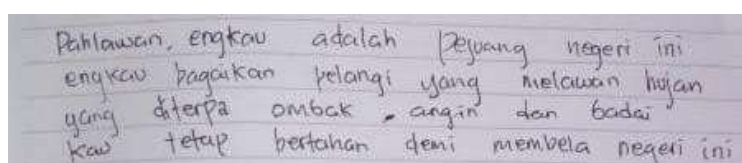 Pahlawan, engkau adalah pejuang negeri ini
engkau bagaikan pelangi yang melawan hujan
yang diterpa ombak, angin dan badai
Kau tetap bertahan demi membela negeri ini